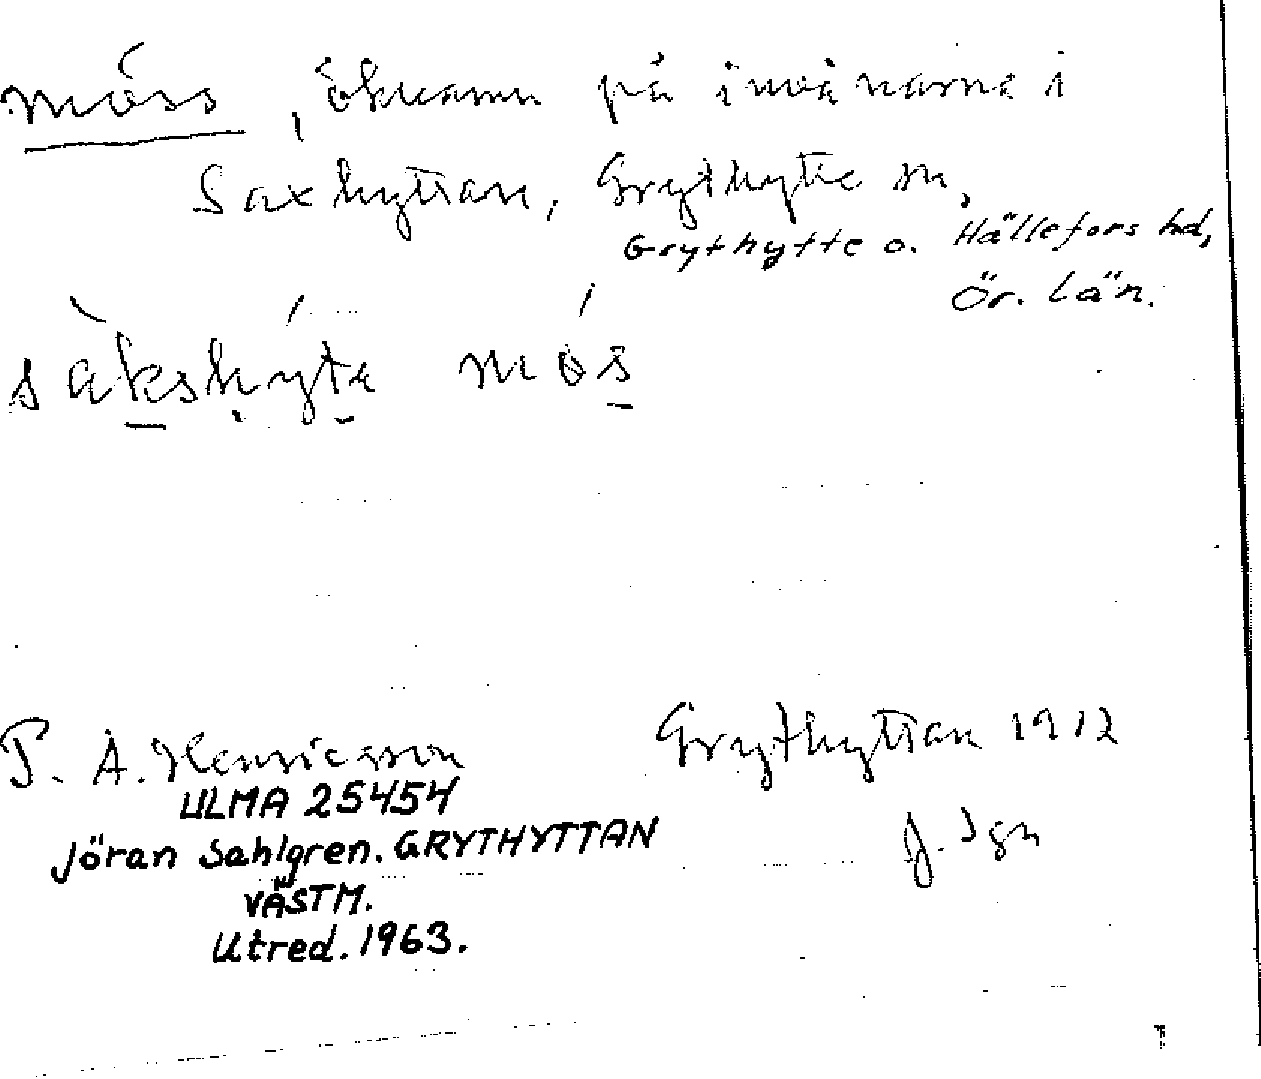 möss, öknamn på invånarna i
Saxhyttan, Grythytte sn,
Grythytte o. Hällefors hd,
Ör. län.
P. A. Henricsson
Grythyttan 1912
ULMA 25454
J. Sgn
Jöran Sahlgren. GRYTHYTTAN
VÄSTM.
Utred. 1963.